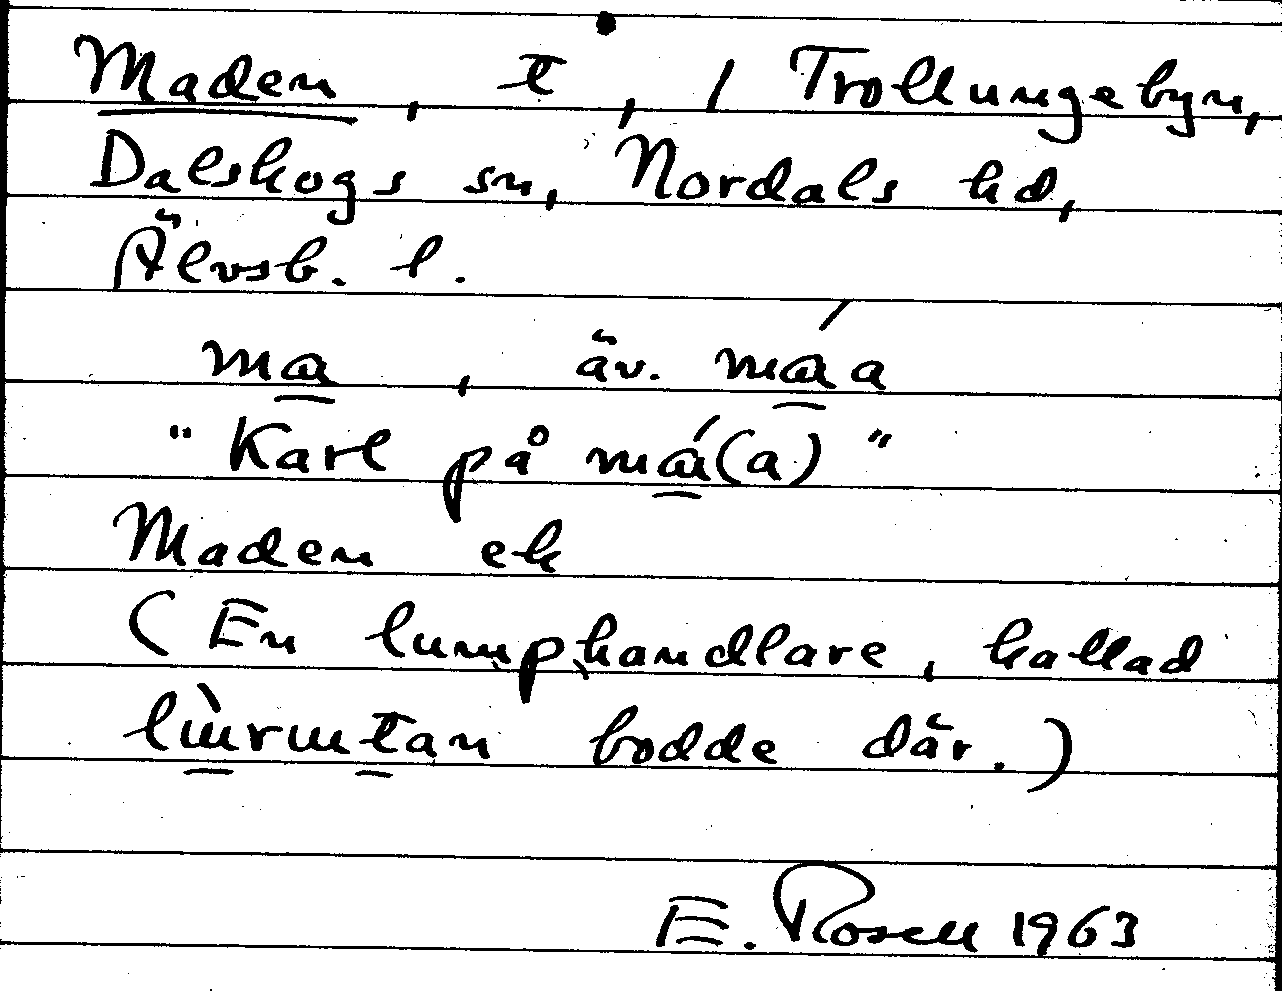 Maden, t, / Trollungebyn,
Dalskogs sn, Nordals hd,
Älvsb. l.
ma, äv. máa
"Karl på má(a)"
Maden ek
(En lumphandlare, kallad
bodde där.)
E. Rosell 1963